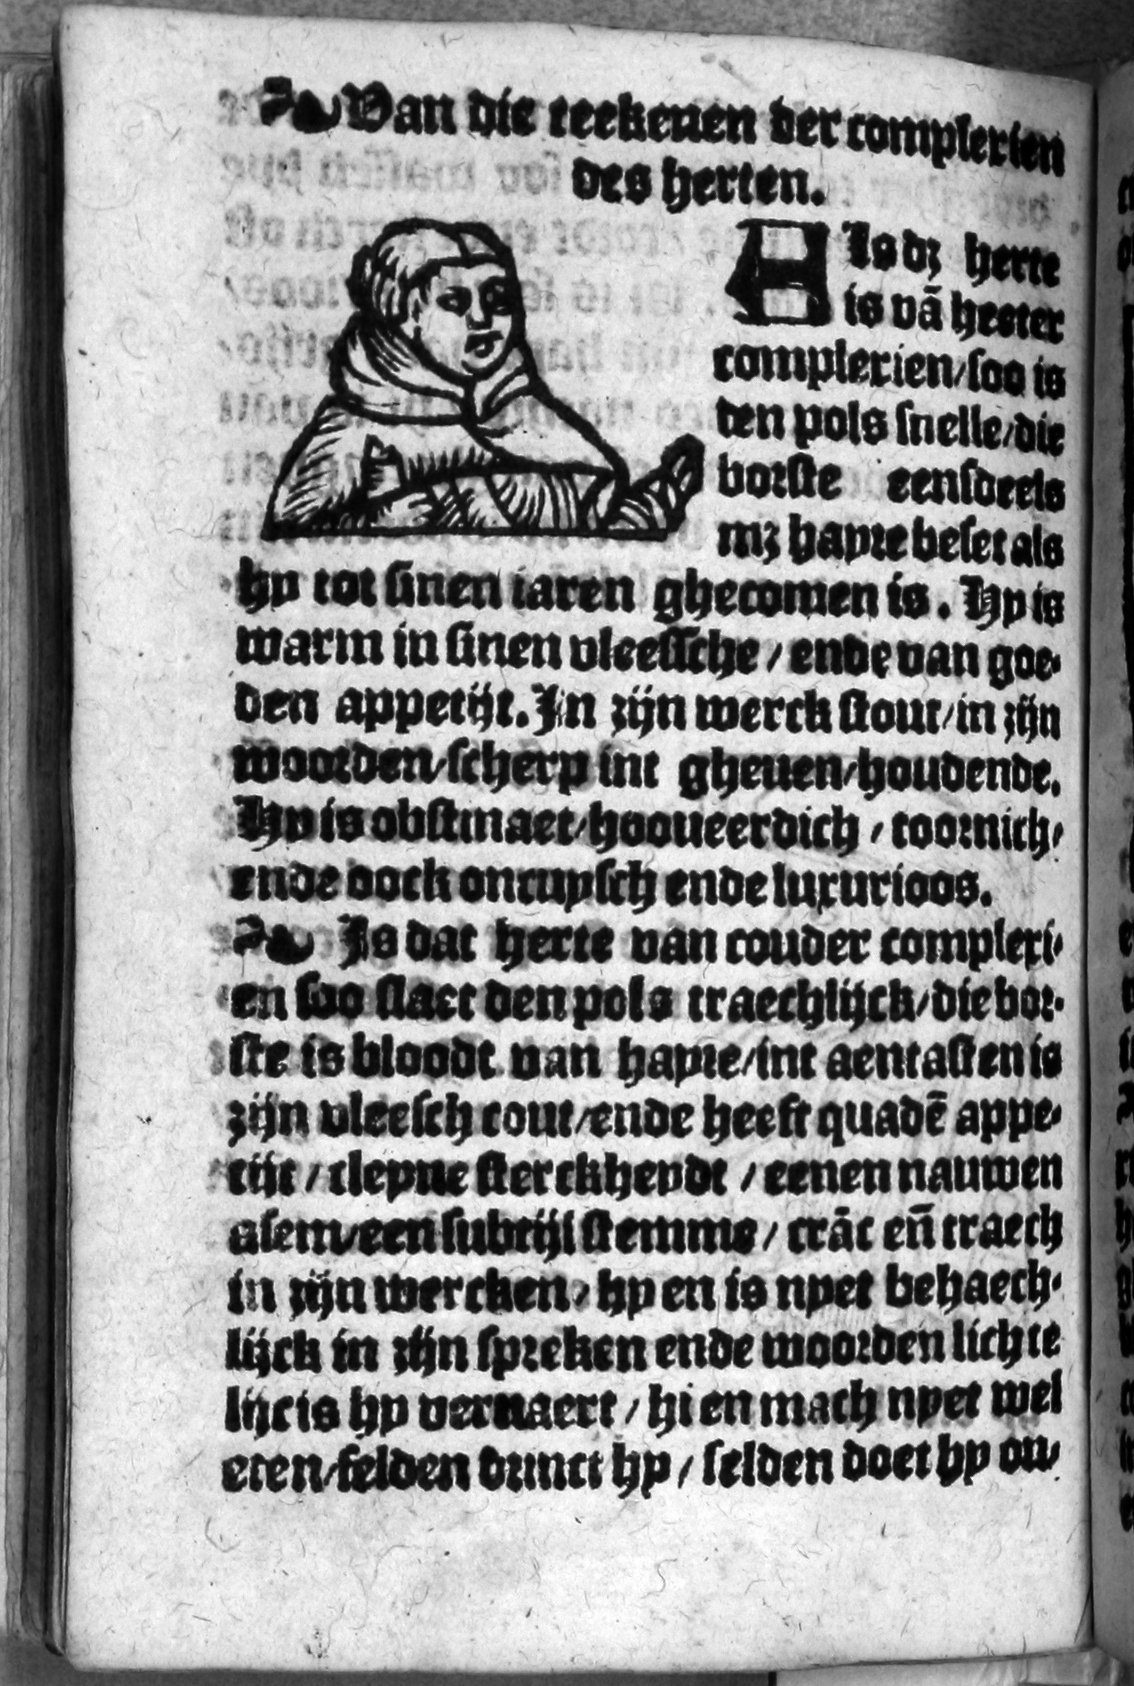 ❧ Van die teekenen der complexien
des herten.
Als dz herte
is vā heeter
complexien/soo is
den pols snelle/die
borste eensdeels
mz hayre beset als
hy tot sinen iaren ghecomen is. Hy is
warm in sinen vleessche/ende van goe-
den appetijt. In zijn werck stout/in zijn
woorden/scherp int gheuen/houdende.
Hy is obstinaet/hooueerdich/toornich/
ende oock oncuysch ende luxurioos.
❧ Is dat herte van couder complexi-
en soo slaet den pols traechlijck/die bor-
ste is bloodt van hayre/int aentasten is
zijn vleesch cout/ende heeft quadē appe-
tijt/cleyne sterckheydt/eenen nauwen
asem/een subtijl stemme/crāc eñ traech
in zijn wercken/hy en is nyet behaech-
lijck in zijn spreken ende woorden lichte
lijc is hy vernaert/hi en mach nyet wel
eten/selden drinct hy/selden doet hy on-